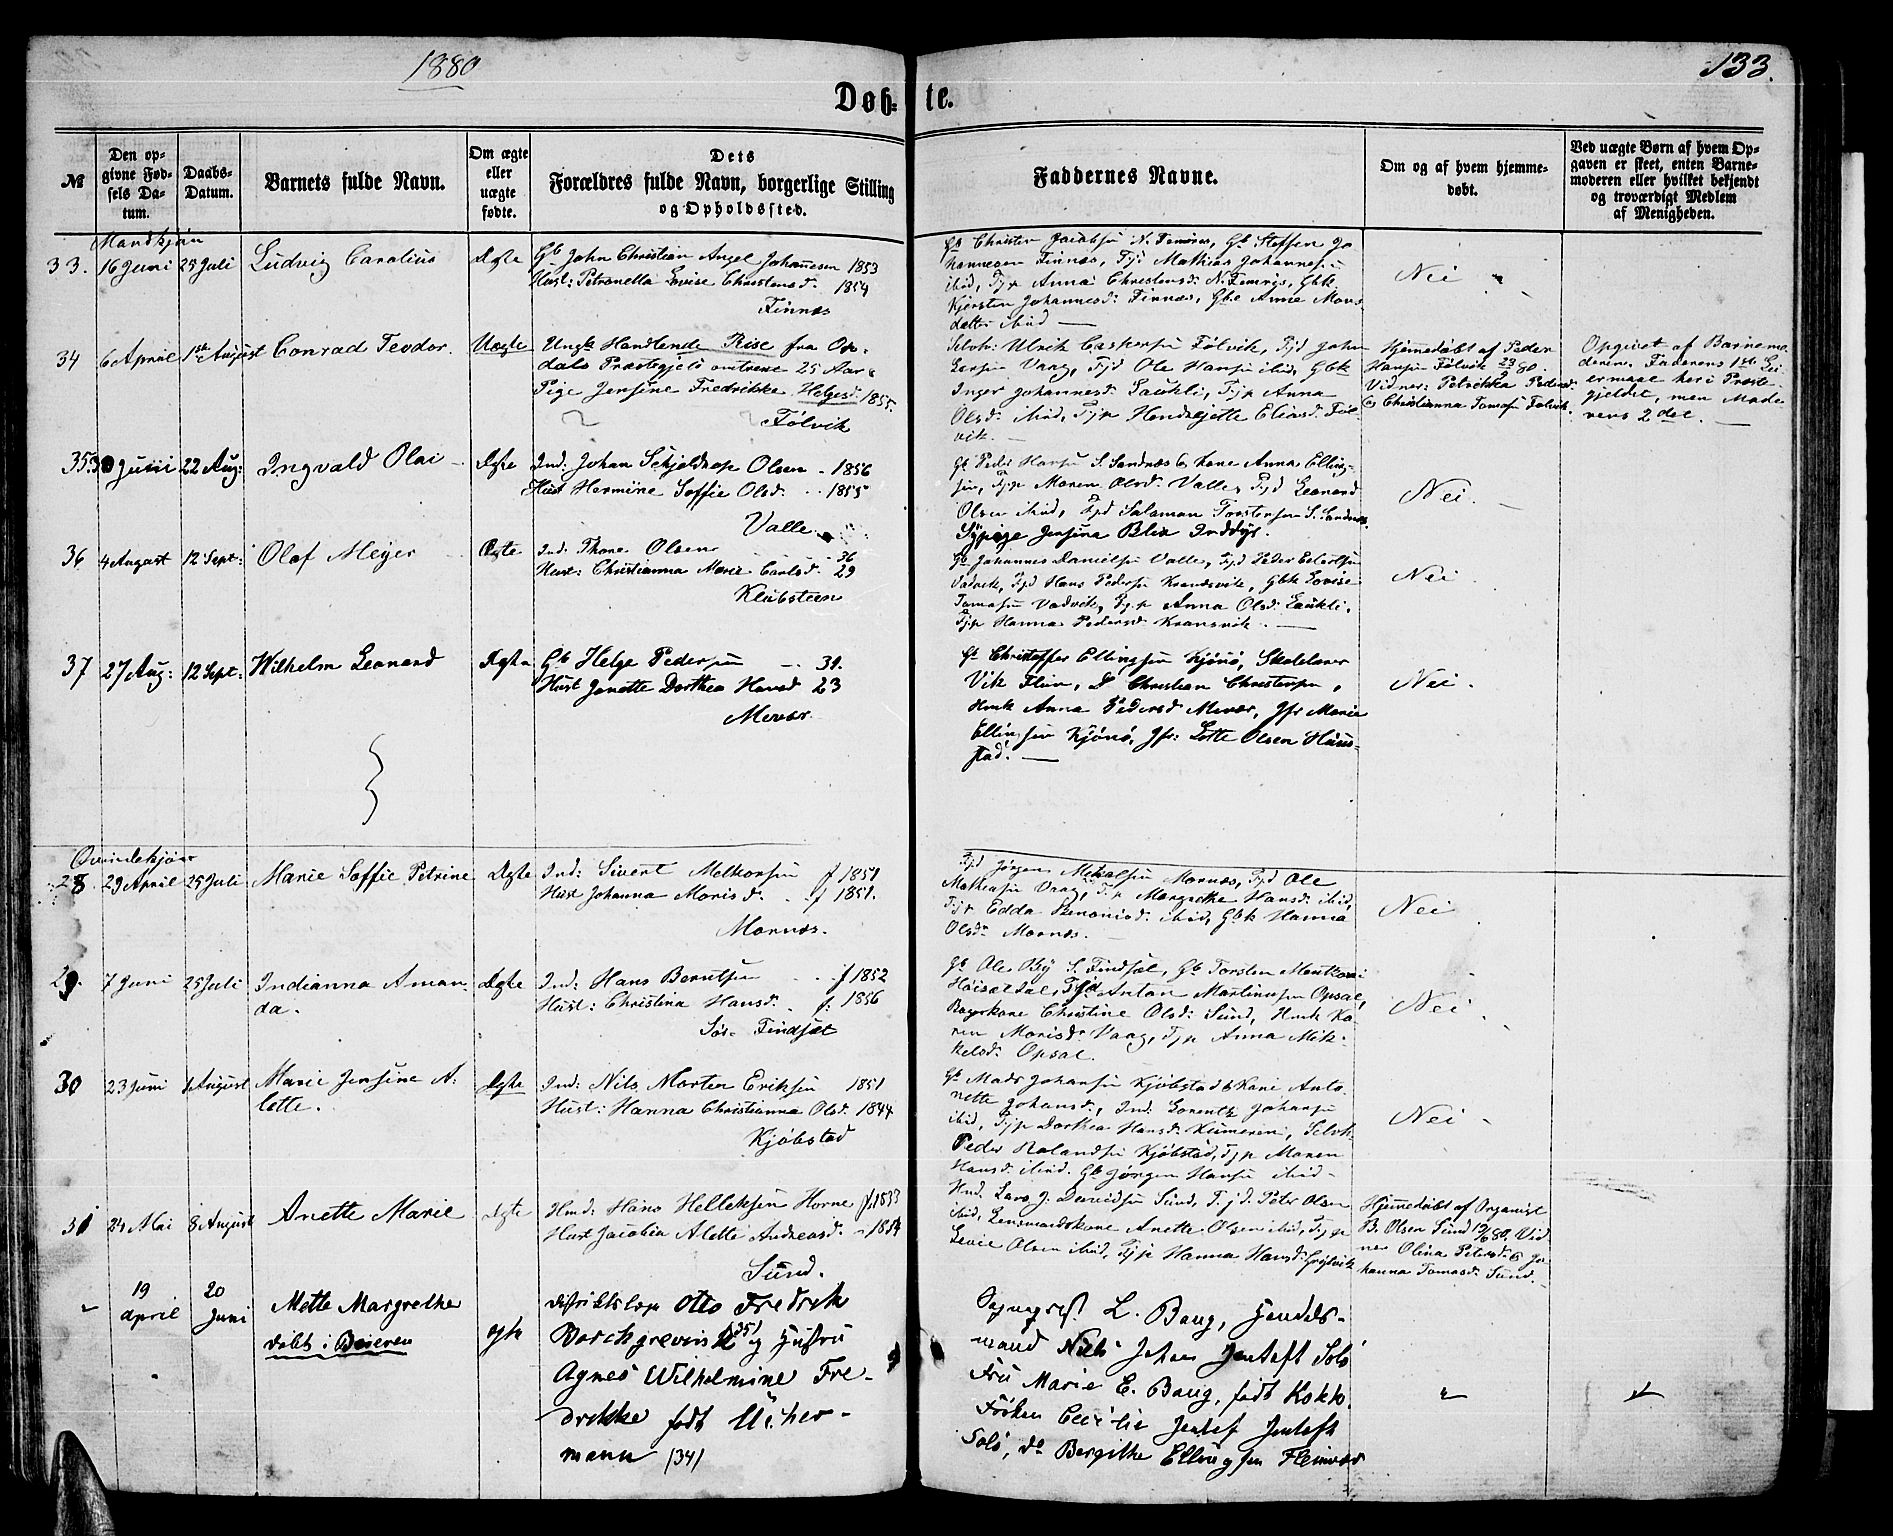 1880
133.
Døb-
te.
№
Den op-
givne Fød-
sels Da-
tum.
Daabs-
Datum.
Barnets fulde Navn.
Om ægte
eller
uægte
fødte.
Dets
Forældres fulde Navn, borgerlige Stilling
og Opholdssted.
Faddernes Navne.
Om og af hvem hjemme-
døbt.
Ved uægte Børn af hvem Op-
gaven er skeet, enten Barne-
moderen eller hvilket bekjendt
og troværdigt Medlem
af Menigheden.
Mandkjøn
33. 16 Juni 25 Juli Ludvig Carolius Ægte
Gb John Christian Angel Johannesen 1853
Hust: Petronella Lovise Christensd. 1854
Finnæs
Gb Christen Jacobsen N. Femris, Gb Steffen Jo-
hannesen Finnæs, Tjd Mathias Johannesen
ibid, Tjp Anna Christensd: N. Femris, Gbk
Kjersten Johannesd: Finnæs, Gbk Anne Mons-
datter ibid
Nei
34 6 April 1ste August Conrad Teodor. Uægte
Ungk Handlende Rise fra Op-
dals Præstegjeld omtrent 25 Aar &
Pige Jensine Fredrikke Helgesd. 1855.
Følvik
Selvh: Ulrik Caspersen Følvik, Tjd John
Larsen Vaag, Tjd Ole Hansen ibid, Gbk
Inger Johannesd: Laukli, Tjp Anna
Olsd: ibid, Tjp Hendrejette Eliasd: Føl-
vik.
Hjemmedøbt af Peder
Hansen Følvik 23/5 80.
Vidner: Petrikka Pedersd:
& Christianna Tomasd Følvik.
Opgivet af Barnemo-
deren. Faderens 1ste Lei-
ermaal her i Præste-
gjeldet, men Mode-
rens 2det.
35 30 Juni 22 Aug: Ingvald Olai Ægte
Ind: Johan Schjeldrop Olsen 1856
Hust Hermine Soffie Olsd: 1855
Valle.
Gb Peder Hansen S. Sandnæs & Kone Anna Elling-
sen, Tjp Maren Olsd: Valle, Tjd Leonard
Olsen ibid, Tjd Salamon Torstensen S. Sandnæs
Sypige Jensina Blix Inddyr.
Nei.
36 4 August 12 Sept: Olaf Meyer Ægte
Ind: Thone Olsen 36
Hust: Christianna Marie Carlsd. 29
Klubsteen
Gb Johannes Danielsen Valle, Tjd Peder Edvartsen
Vadvik, Tjd Hans Pedersen Kransvik, Gbk Lovise
Tomasen Vadvik, Tjp Anna Olsd: Laukli,
Tjp Hanna Pedersd: Kransvik.
Nei
37 27 Aug: 12 Sept: Wilhelm Leonard Ægte
Gb Helge Pedersen 31.
Hust Janette Dorthea Hansd 23
Mevær.
Gb Christoffer Ellingsen Kjønø, Skolelærer
Vik Flein, Do Christian Christensen,
Huk Anna Pedersd Mevær, Jfr Marie
Ellingsen Kjønø, Jfr: Lotte Olsen Haug-
stad.
Nei.
Qvindekjøn
28. 29 April 25 Juli Marie Soffie Petrine Ægte
Ind: Sivert Melkorsen f 1851
Hust Johanna Morisd. f 1851.
Mornæs.
Tjd Jørgen Mikalsen Mornæs, Tjd Ole
Mathiasen Vaag, Tjp Margrethe Hansd: ibid,
Tjp Edda Zenoniad: ibid, Gbk Hanna
Olsdr Mornæs.
Nei
29. 7 Juni 25 Juli Indianna Aman-
da. Ægte
Ind: Hans Berntsen f 1852
Hust: Christina Hansd: f: 1856
Sør-Findset
Gb Ole Bøy S. Findset, Gb Torsten Montkoni
Høisetdal, Tjd Anton Martinusen Opsal,
Bagerkone Christine Olsd: Sund, Huk Ka-
ren Morisdr Vaag, Tjp Anna Mik-
kelsd: Opsal.
Nei.
30 23 Juni 1 August Marie Jensine A-
lette. Ægte
Ind: Nils Morten Eriksen 1851
Hust: Hanna Christianna Olsd. 1844
Kjøbstad
Gb Mads Johansen Kjøbstad & Kone Anto-
nette Johansd:, Ind: Lorentz Johansen
ibid, Tjp Dorthea Hansd: Kumeren, Selvh
Peder Rolandsen Kjøbstad, Tjp Maren
Hansd: ibid. Gb Jørgen Hansen ibid
Nei
31 24 Mai 8 August Anette Marie Ægte
Hmd: Hans Helleksen Horne f. 1833
Hust Jacobea Alette Andreasd. 1854
Sund.
Hmd. Lars J. Davidsen Sund, Tjd: Peter Olsen
ibid, Lensmandskone Anette Olsen ibid, Tjp
Levie Olsen ibid, Tjp Hanna Hansd: Grytvik
Hjemmedøbt af Organist
B. Olsen Sund 13/6 80. Vid-
ner Olina Petersd: & Jo-
hanna Tomasd: Sund.
19
april
20
Juni
Mette Margrethe
døbt i Beieren
ægte
Distriktslæge Otto Fredrik
Borchgrevink (35) og Hustru
Agnes Wilhelmine Fre-
drikke født Uchermann (34)
Sognepræst L. Baug, Handels-
mand Niels Johan Jentoft Solö
Fru Marie E. Baug, født Kokk.
Frøken Cecilie Jentoft Jentoft
Solö, do Bergitte Ellingsen Fleinvær